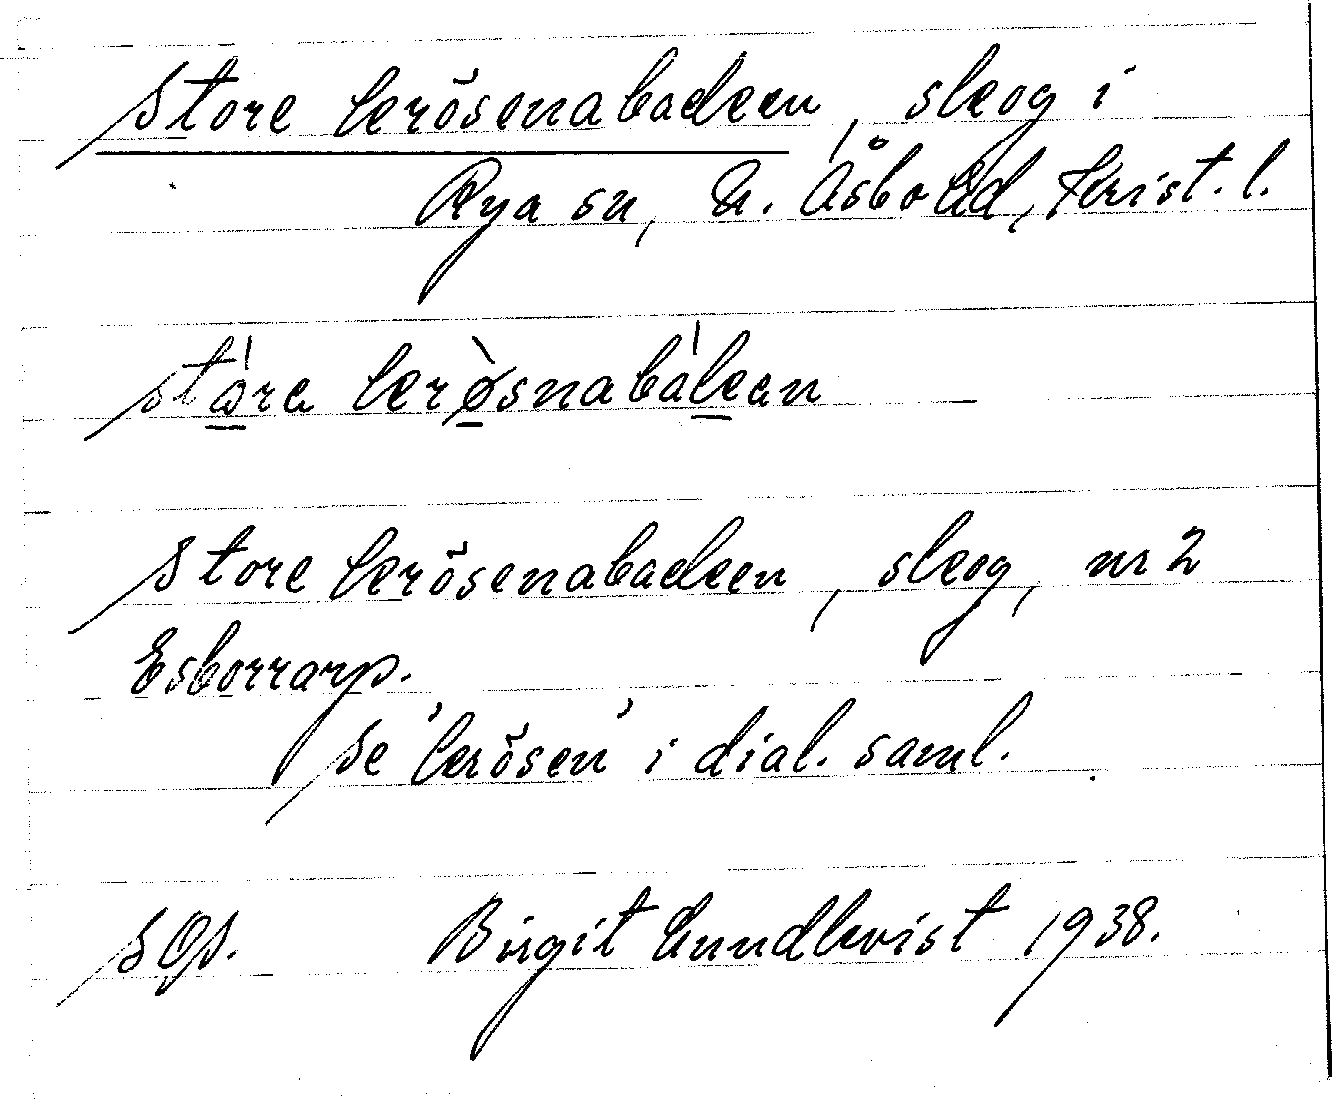 Store krösenabacken, skog i
Rya sn, N. Åsbo hd, Krist. l.
stɷ́ra krø̀snabákan
Store krösenabacken, skog, nr 2
Esborrarp.
Se 'krösen' i dial. saml.
Birgit Lundkvist 1938.